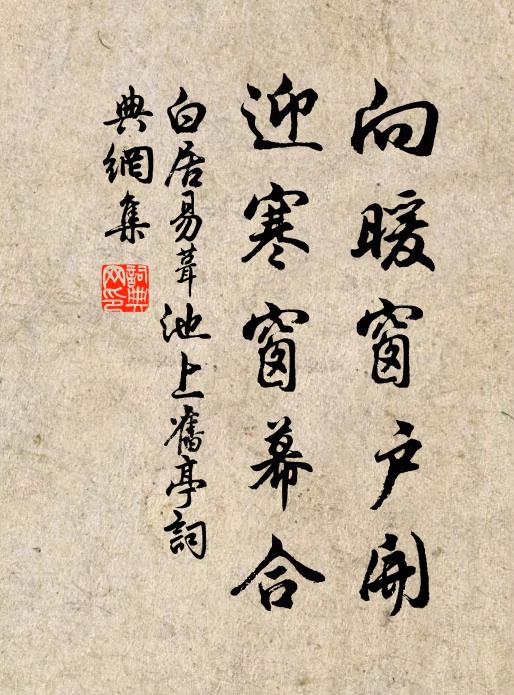 向暖窗户開
迎寒窗幕合
白居易葺池上舊亭詞
典網集
詞典
网印